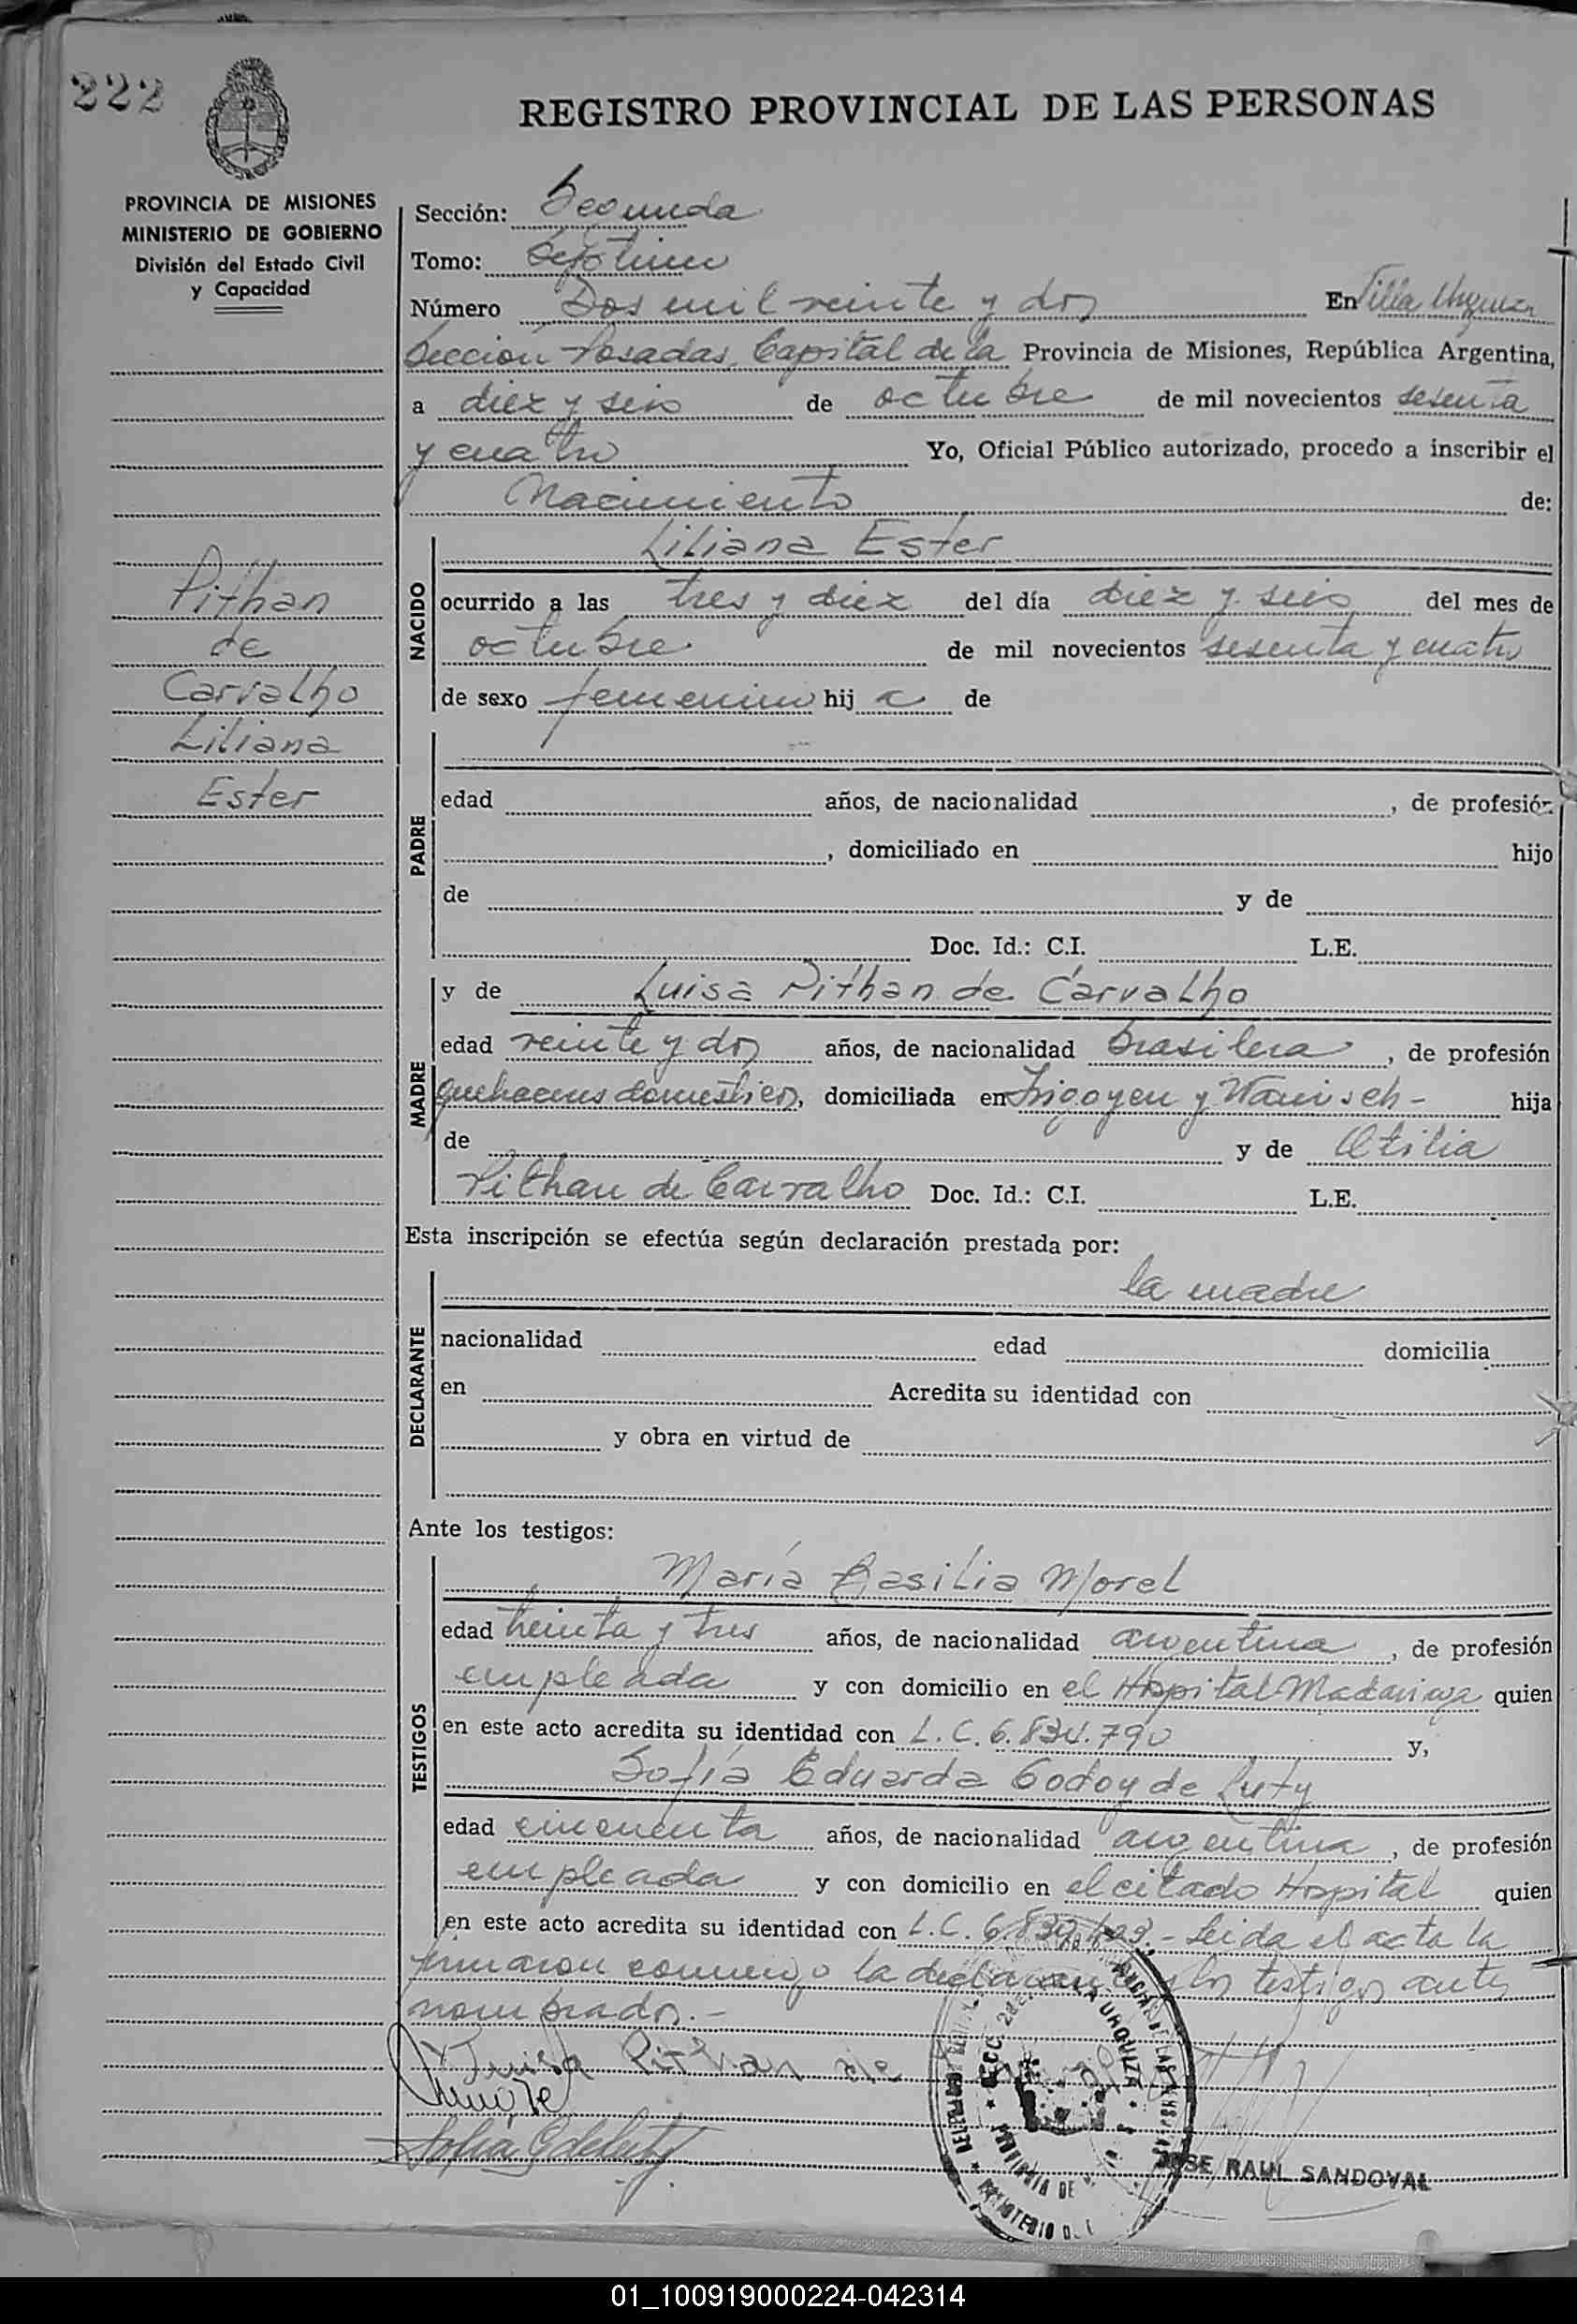 222
REGISTRO PROVINCIAL DE LAS PERSONAS
PROVINCIA DE MISIONES
MINISTERIO DE GOBIERNO
División del Estado Civil
y Capacidad
Sección: Segunda
Tomo: Septimo
Número Dos mil veinte y dos En Villa Urquiza
Sección Posadas, Capital de la Provincia de Misiones, República Argentina,
a diez y seis de octubre de mil novecientos sesenta
y cuatro Yo, Oficial Público autorizado, procedo a inscribir el
Nacimiento de:
Pithan
de
Carvalho
Liliana
Ester
NACIDO
Liliana Ester
ocurrido a las tres y diez del día diez y seis del mes de
octubre de mil novecientos sesenta y cuatro
de sexo femenino hij a de
PADRE
edad años, de nacionalidad , de profesión
, domiciliado en hijo
de y de
Doc. Id.: C.I. L.E.
MADRE
y de Luisa Pithan de Carvalho
edad veinte y dos años, de nacionalidad brasilera , de profesión
quehaceres domesticos, domiciliada en Irigoyen y Wanisch - hija
de y de Otilia
Pithan de Carvalho Doc. Id.: C.I. L.E.
Esta inscripción se efectúa según declaración prestada por:
DECLARANTE
la madre
nacionalidad edad domicilia
en Acredita su identidad con
y obra en virtud de
Ante los testigos:
TESTIGOS
María Basilia Morel
edad treinta y tres años, de nacionalidad argentina , de profesión
empleada y con domicilio en el Hospital Madariaga quien
en este acto acredita su identidad con L.C. 6.834.790 y,
Sofía Eduarda Godoy de Luty
edad cincuenta años, de nacionalidad argentina , de profesión
empleada y con domicilio en el citado Hospital quien
en este acto acredita su identidad con L.C. - Leida el acta la
firmaron conmigo la declarante y los testigos antes
nombrados.-
Luisa Pithan de
JOSE RAUL SANDOVAL
01_100919000224-042314